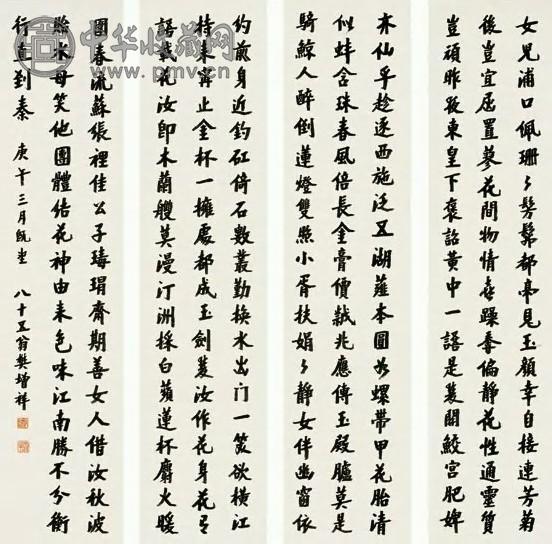 女兒浦口佩珊珊髣髴都亭見玉顏幸自接連芳菊
後豈宜屈置蓼花間物情喜躁吾偏靜花性通靈質
豈頑昨夜東皇下褒詔黃中一語是葭關鮫宮肥婢
亦仙乎趁逐西施泛五湖薤本圓如螺帶甲花胎清
似蚌含珠春風倍長金膏價越兆應傳玉殿臚莫是
騎鯨人醉倒蓮燈雙照小胥扶娟娟靜女伴幽窗依
約前身近釣矼倚石數叢勤換水出門一笑欲橫江
持來寧止金杯一擁處都成玉劍雙汝作花身花弓
語我花汝即木蘭艭莫漫汀洲採白蘋蓮杯麝火暖
團春流蘇張裡佳公子瑇瑁齋期善女人借汝秋波
貽水母笑他團體結花神由來色味江南勝不分衡
行直到秦 庚午三月既望 八十五翁樊增祥
中华收藏网
www.pmv.cn